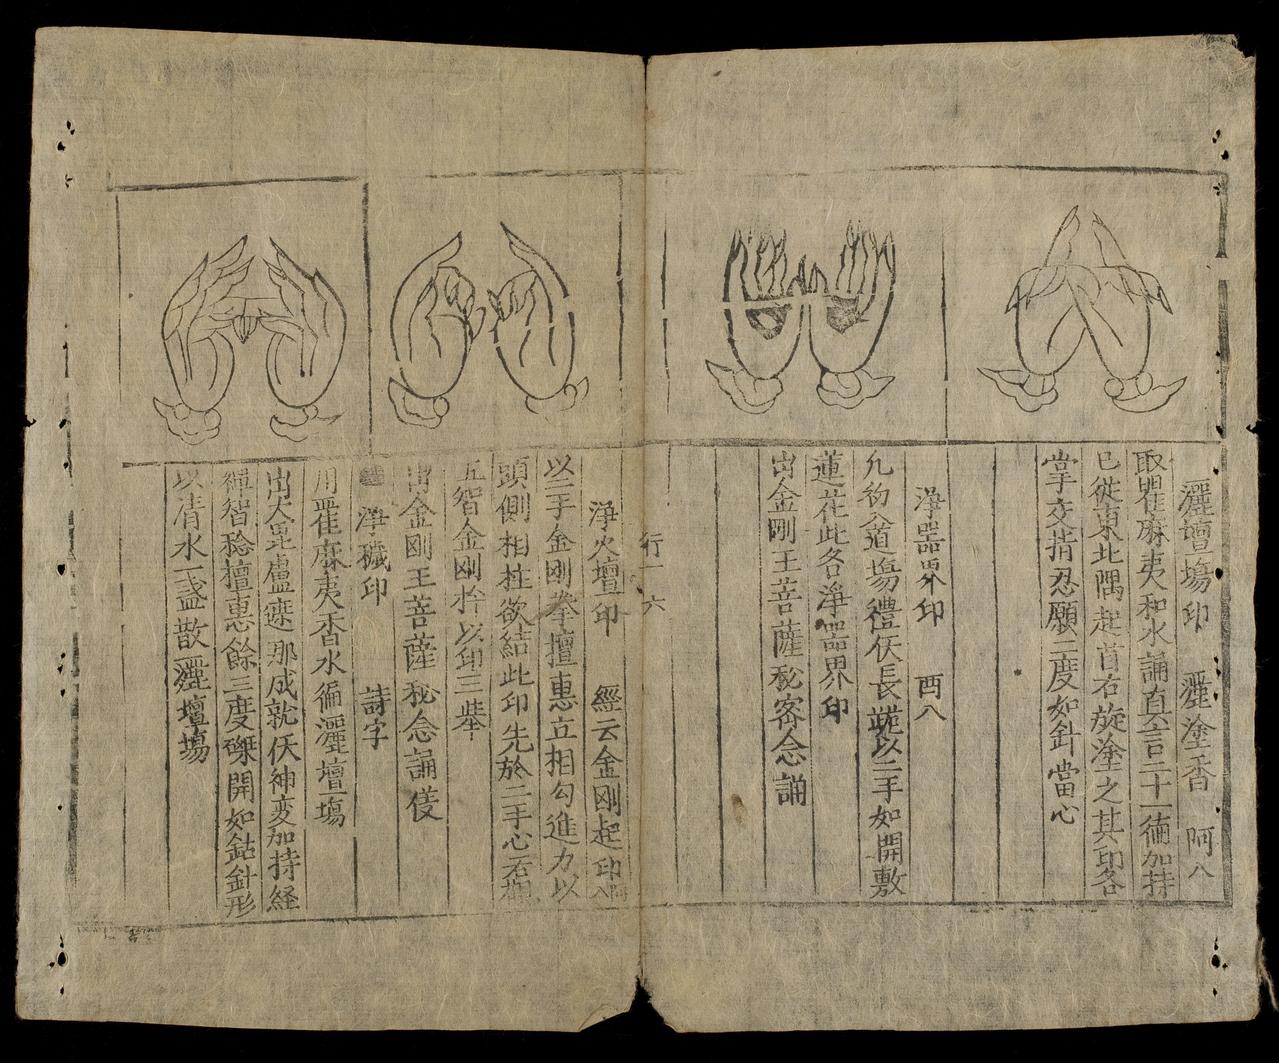 灑壇場印 灑塗香 呵八
取瞿麻夷和水誦真言二十一徧加持
已從東北隅起首右旋塗之其印各
掌交指忍願二度如針當心
淨器界印 酉八
凡約入道場禮仸長跪以二手如開敷
蓮花此各淨器界印
出金剛王菩薩秘密念誦
行一 六
淨火壇印 經云金刚起印
以二手金刚拳擅惠立相勾進力以
頭側相拄欲結此印先於二手心右觀
五智金刚杵以印三舉
出金刚王菩薩秘念誦儀
淨穢印 詩字
用瞿麻夷香水徧灑壇場
出大毗盧遮那成就仸神变加持経
禅智稔擅惠餘三度磔開如鈷針形
以清水一盏散灑壇場